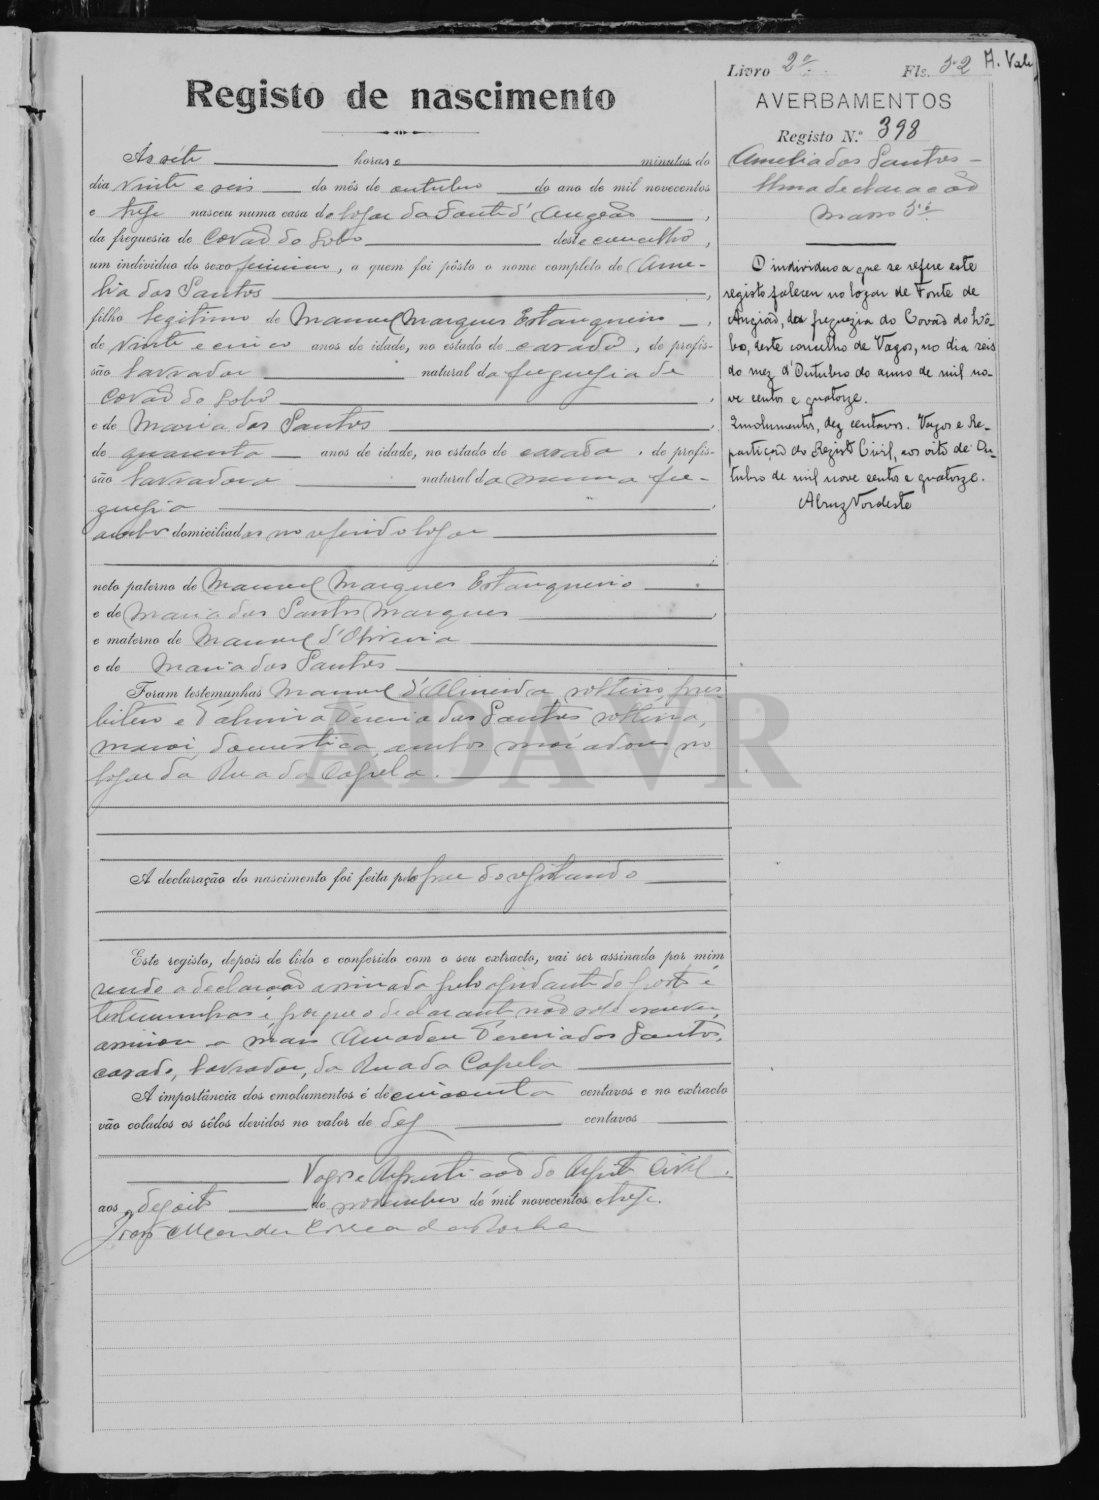 Livro 2º Fls. 52 A. Vale
Registo de nascimento
As sete horas e minutos do
dia vinte e seis do mês de outubro do ano de mil novecentos
e treze nasceu numa casa do logar da Fonte d'Angeão,
da freguesia de Covão do Lobo deste concelho,
um individuo do sexo feminino, a quem foi pôsto o nome completo de Ame-
lia dos Santos,
filho legitimo de Manuel Marques Estanqueiro,
de vinte e cinco anos de idade, no estado de casado, de profis-
são lavrador natural da freguesia de
Covão do Lobo,
e de Maria dos Santos,
de quarenta anos de idade, no estado de casada, de profis-
são lavradora natural da mesma fre-
guesia,
ambos domiciliados no referido logar
neto paterno de Manuel Marques Estanqueiro
e de Maria dos Santos Marques,
e materno de Manuel d'Oliveira
e de Maria dos Santos
Foram testemunhas Manuel d'Almeida, solteiro, pres-
bitero e Pereira dos Santos solteira,
maior, domestica, ambos moradores no
logar da Rua da Capela.
A declaração do nascimento foi feita pelo pae do registando
Este registo, depois de lido e conferido com o seu extracto, vai ser assinado por mim
sendo a declaração assinada pelo ajudante do posto e
testemunhas e porque o declarante não sabe escrever,
assinou a mais Amadeu Pereira dos Santos,
casado, lavrador, da Rua da Capela
A importância dos emolumentos é de cincoenta centavos e no extracto
vão colados os sêlos devidos no valor de dez centavos
Vagos e Repartição do Registo Civil.
aos dezoito de novembro de mil novecentos e treze.
João Mendes Correa da Rocha
AVERBAMENTOS
Registo N.º 398
Amelia dos Santos –
Uma declaração
maço 5º
O individuo a que se refere este
registo faleceu no logar de Fonte de
Angião, da freguezia do Covão do Lô-
bo, deste concelho de Vagos, no dia seis
do mez d'Outubro do anno de mil no-
ve centos e quatorze.
Emolumentos, dez centavos. Vagos e Re-
partição do Registo Civil, aos oito de Ou-
tubro de mil nove centos e quatorze.
ADAVR